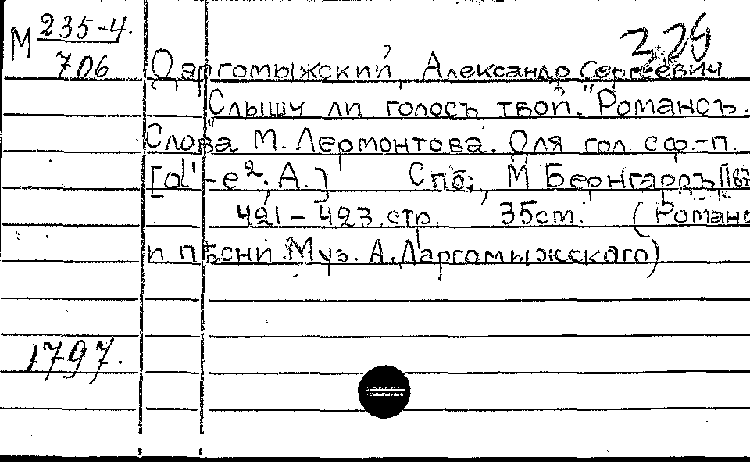 М 235-4.
706
Даргомыжский, Александр Сергеевич
"Слышу ли голосъ твой." Романсъ.
Слова М. Лермонтова. Для гол. с ф.-п.
[d¹-e²; A.] Спб., М Бернгардъ
421-423 стр. 35см. (Романс
и пѣсни Муз. А. Даргомыжского)
1797.